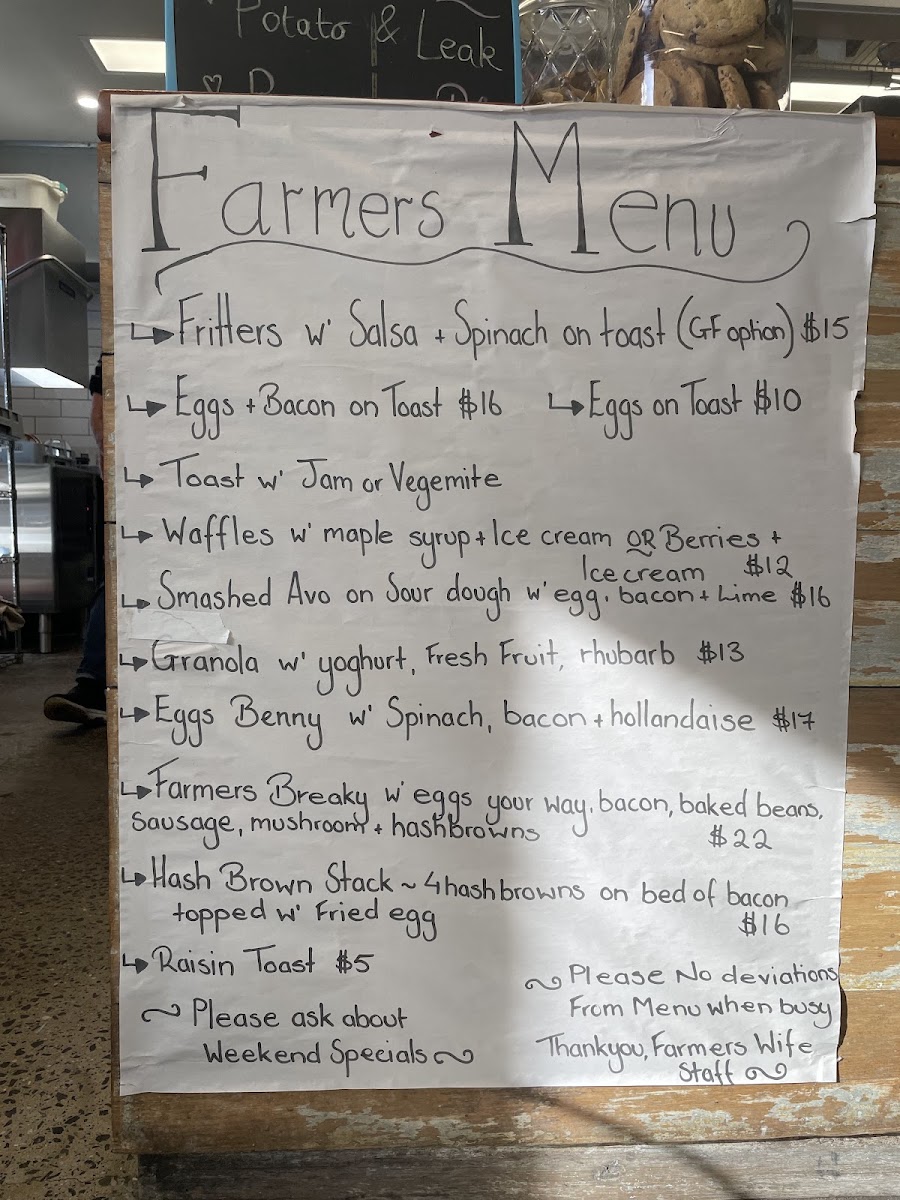 Potato & Leak
Farmers Menu
Fritters w' Salsa + Spinach on toast (GF option) $15
Eggs + Bacon on Toast $16 Eggs on Toast $10
Toast w' Jam or Vegemite
Waffles w' maple syrup + Ice cream OR Berries +
Ice cream $12
Smashed Avo on Sour dough w' egg, bacon + Lime $16
Granola w' yoghurt, Fresh Fruit, rhubarb $13
Eggs Benny w' Spinach, bacon + hollandaise $17
Farmers Breaky w' eggs your way, bacon, baked beans,
Sausage, mushroom + hashbrowns $22
Hash Brown Stack ~ 4 hashbrowns on bed of bacon
topped w' Fried egg $16
Raisin Toast $5
Please ask about
Weekend Specials
Please No deviations
From Menu when busy
Thankyou, Farmers Wife
Staff